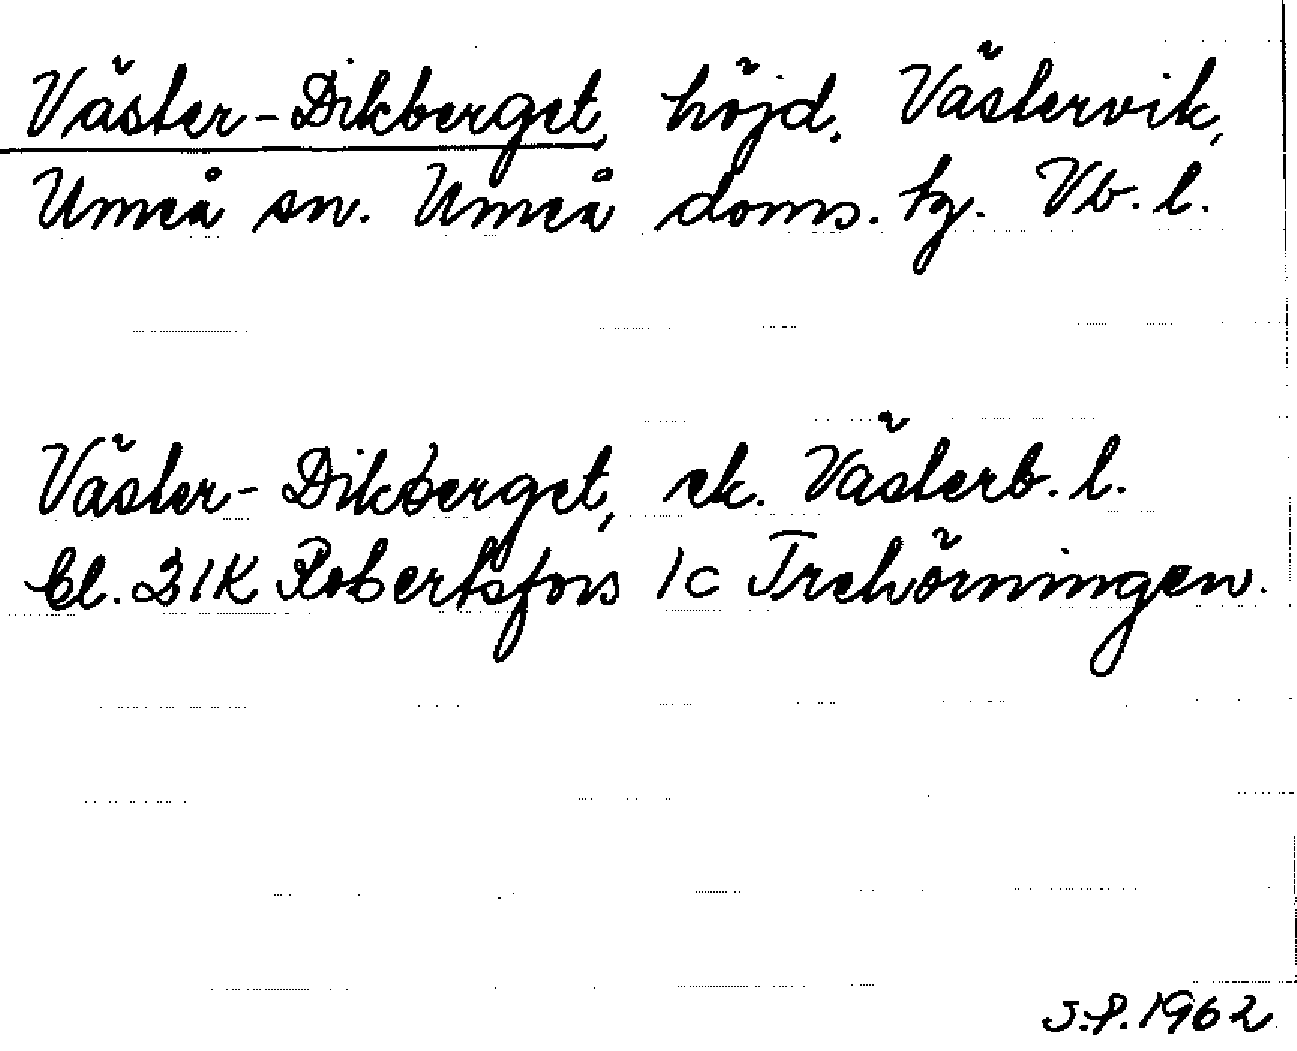 Väster-Dikberget, höjd. Västervik,
Umeå sn. Umeå doms. tg. Vb. l.
Väster-Dikberget, ek. Västerb. l.
bl. 21K Robertsfors 1c Trehörningen.
J.P. 1962